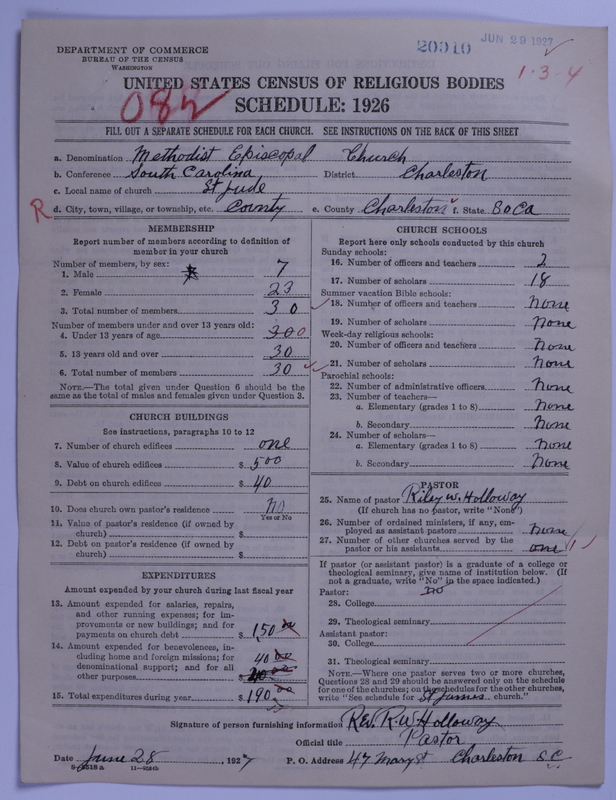 DEPARTMENT OF COMMERCE
BUREAU OF THE CENSUS
WASHINGTON
20910
JUN 29 1927
1-3-4
UNITED STATES CENSUS OF RELIGIOUS BODIES
082
SCHEDULE: 1926
FILL OUT A SEPARATE SCHEDULE FOR EACH CHURCH. SEE INSTRUCTIONS ON THE BACK OF THIS SHEET
a. Denomination Methodist Episcopal Church
b. Conference South Carolina District Charleston
c. Local name of church St Jude
R d. City, town, village, or township, etc. County e. County Charleston f. State So Ca
MEMBERSHIP
Report number of members according to definition of
member in your church
Number of members, by sex:
1. Male 7
2. Female 23
3. Total number of members 30
Number of members under and over 13 years old:
4. Under 13 years of age 300
5. 13 years old and over 30
6. Total number of members 30
NOTE.—The total given under Question 6 should be the
same as the total of males and females given under Question 3.
CHURCH BUILDINGS
See instructions, paragraphs 10 to 12
7. Number of church edifices one
8. Value of church edifices $ 500
9. Debt on church edifices $ 40
10. Does church own pastor's residence No
Yes or No
11. Value of pastor's residence (if owned by
church) $
12. Debt on pastor's residence (if owned by
church) $
EXPENDITURES
Amount expended by your church during last fiscal year
13. Amount expended for salaries, repairs,
and other running expenses; for im-
provements or new buildings; and for
payments on church debt $ 150 00
14. Amount expended for benevolences, in-
cluding home and foreign missions; for
denominational support; and for all
other purposes $ 40 00
15. Total expenditures during year $ 190 00
CHURCH SCHOOLS
Report here only schools conducted by this church
Sunday schools:
16. Number of officers and teachers 2
17. Number of scholars 18
Summer vacation Bible schools:
18. Number of officers and teachers None
19. Number of scholars None
Week-day religious schools:
20. Number of officers and teachers None
21. Number of scholars None
Parochial schools:
22. Number of administrative officers None
23. Number of teachers—
a. Elementary (grades 1 to 8) None
b. Secondary None
24. Number of scholars—
a. Elementary (grades 1 to 8) None
b. Secondary None
PASTOR
25. Name of pastor Riley W. Holloway
(If church has no pastor, write "None")
26. Number of ordained ministers, if any, em-
ployed as assistant pastors None
27. Number of other churches served by the
pastor or his assistants one 1
If pastor (or assistant pastor) is a graduate of a college or
theological seminary, give name of institution below. (If
not a graduate, write "No" in the space indicated.)
Pastor: no
28. College
29. Theological seminary
Assistant pastor:
30. College
31. Theological seminary
NOTE.—Where one pastor serves two or more churches,
Questions 28 and 29 should be answered only on the schedule
for one of the churches; on the schedules for the other churches,
write "See schedule for St James church."
Signature of person furnishing information Rev. R. W Holloway
Official title Pastor
Date June 28, 1927 P. O. Address 47 Mary St Charleston S.C.